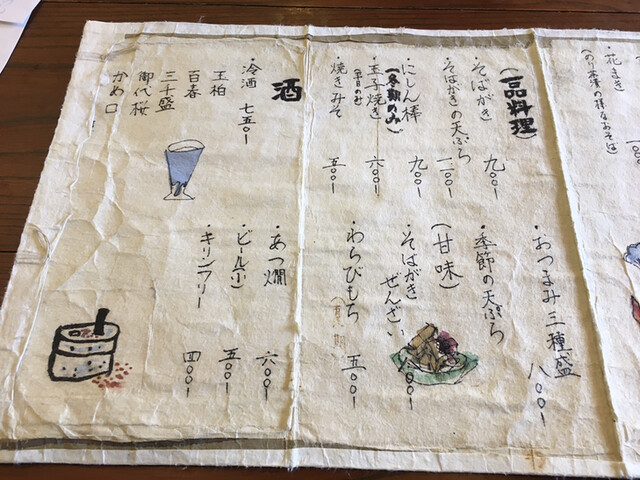 ・花まき
(のり茶漬の様なおそば)
(一品料理)
・そばがき 九〇〇ー
・そばがきの天ぷら 一、二〇〇ー
・にしん棒 九〇〇ー
(冬期のみ)
・玉子焼き 六〇〇ー
(平日のみ)
・焼きみそ 五〇〇ー
・おつまみ三種盛 八〇〇ー
・季節の天ぷら
(甘味)
・そばがき
ぜんざい 八〇〇ー
・わらびもち 五〇〇ー
(夏期)
酒
・冷酒 七五〇ー
王柏
百春
三千盛
御代桜
かめ口
・あつ燗 六〇〇ー
・ビール(小) 五〇〇ー
・キリンフリー 四〇〇ー